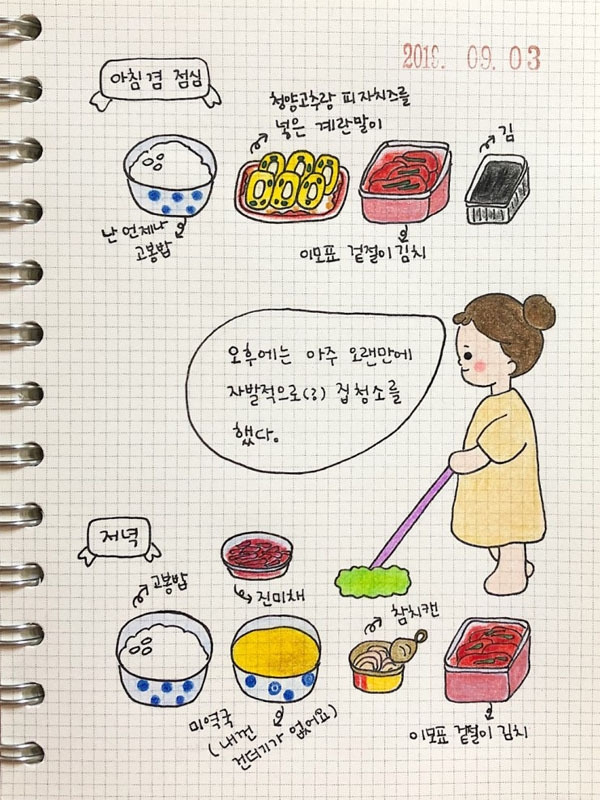 2019. 09. 03
아침 겸 점심
청양고추랑 피자치즈를
넣은 계란말이
김
난 언제나
고봉밥
이모표 겉절이 김치
오후에는 아주 오랜만에
자발적으로(?) 집청소를
했다.
저녁
고봉밥
진미채
참치캔
미역국
(내껀
건더기가 없어요)
이모표 겉절이 김치